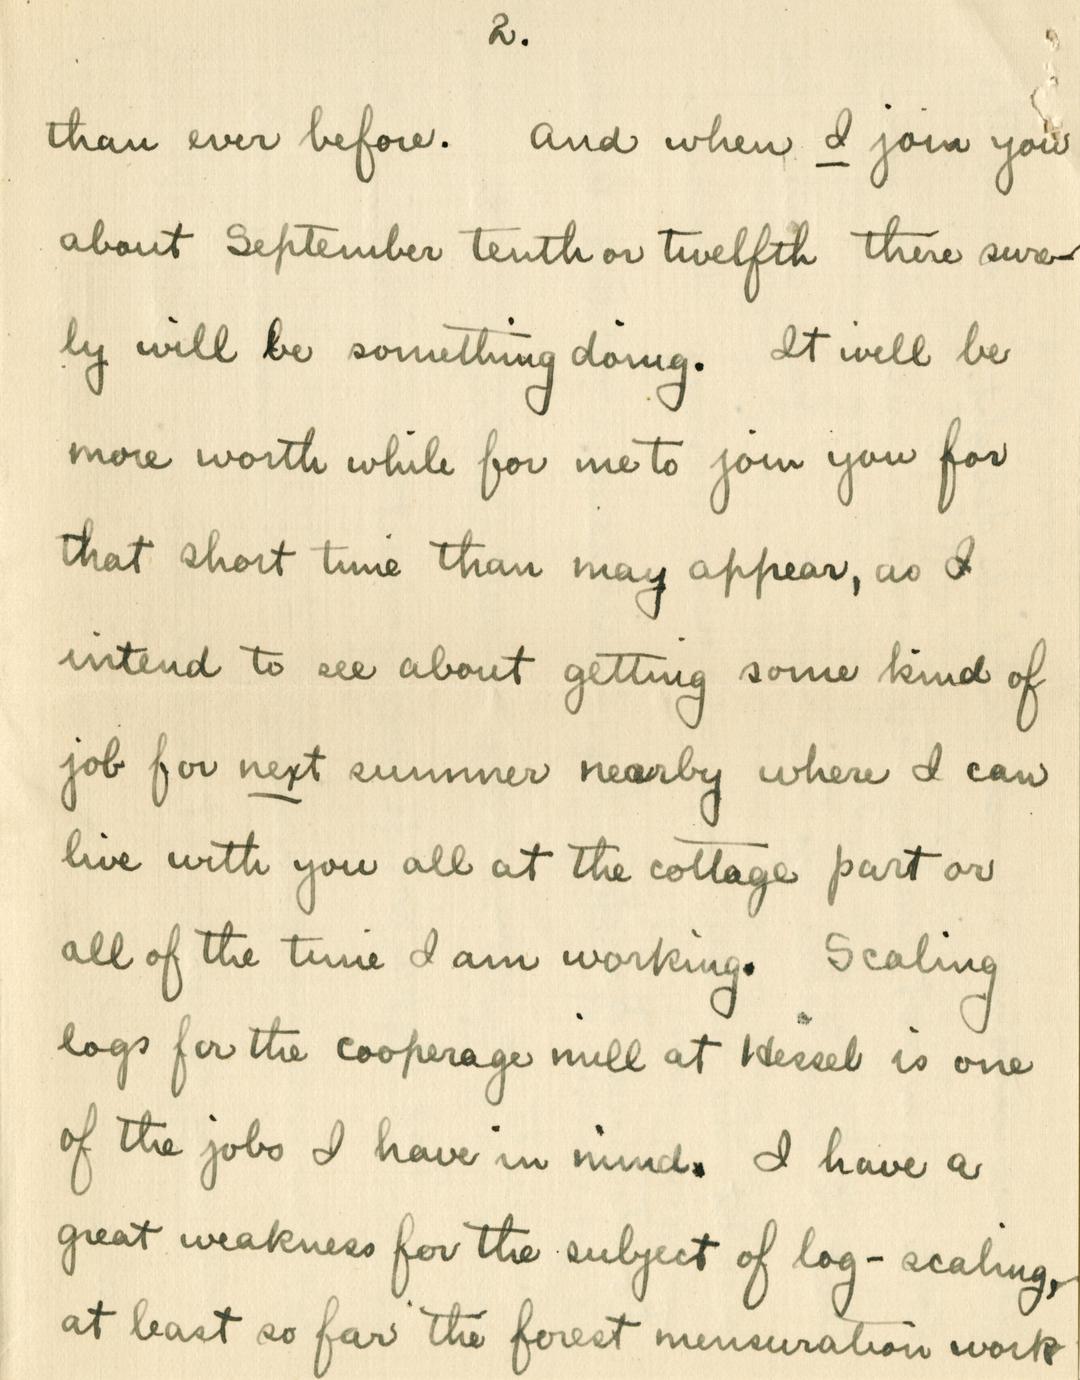 2.
than ever before. And when I join you
about September tenth or twelfth there sure-
ly will be something doing. It will be
more worth while for me to join you for
that short time than may appear, as I
intend to see about getting some kind of
job for next summer nearby where I can
live with you all at the cottage part or
all of the time I am working. Scaling
logs for the cooperage mill at Hessel is one
of the jobs I have in mind. I have a
great weakness for the subject of log-scaling,
at least so far the forest mensuration work